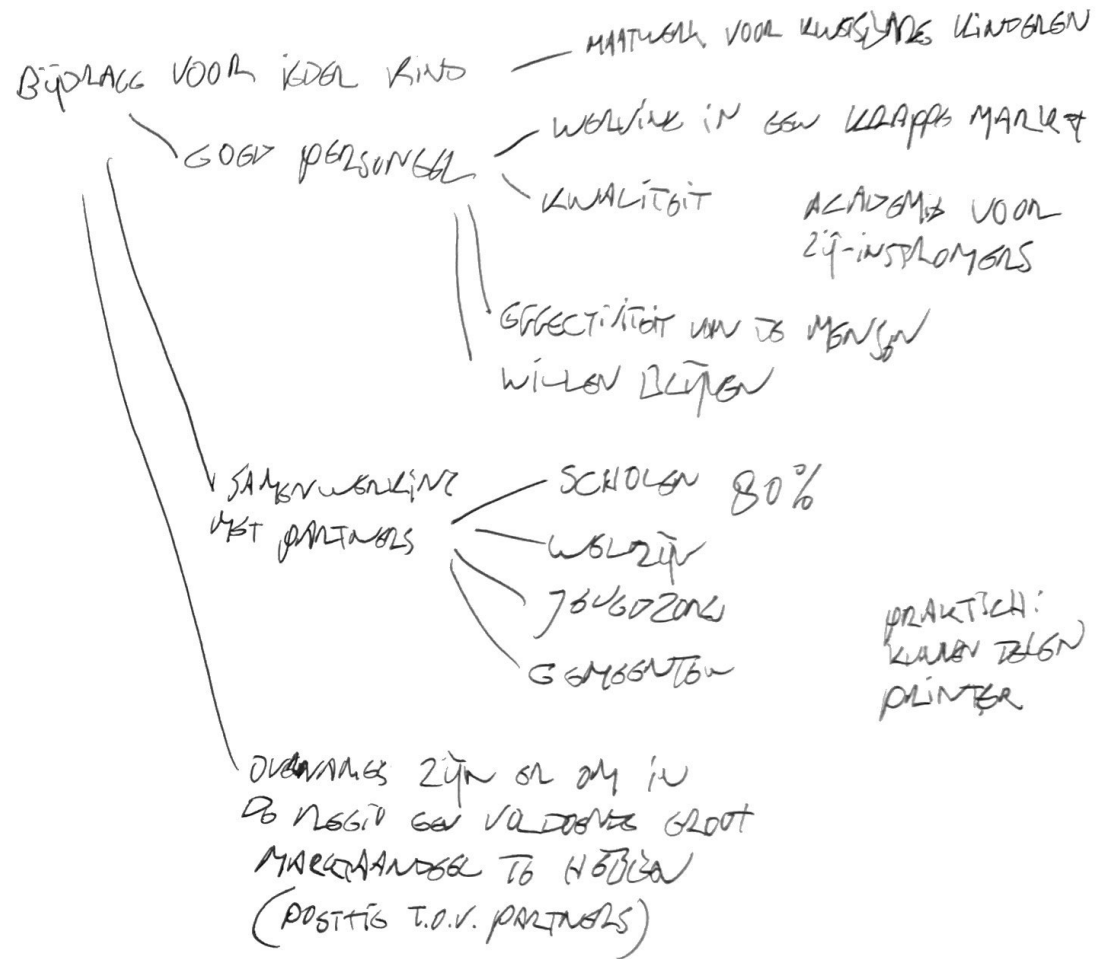 MAATWERK VOOR KWETSBARE KINDEREN
BIJDRAGE VOOR IEDER KIND
WERVING IN EEN KRAPPE MARKT
GOED PERSONEEL
KWALITEIT
ACADEMIE VOOR
ZIJ-INSTROMERS
EFFECTIVITEIT VAN DE MENSEN
WILLEN BLIJVEN
SAMENWERKING
MET PARTNERS
SCHOLEN 80%
WELZIJN
JEUGDZORG
GEMEENTEN
PRAKTISCH:
KUNNEN DELEN
PRINTER
OVERNAMES ZIJN ER OM IN
DE REGIO EEN VOLDOENDE GROOT
MARKTAANDEEL TE HEBBEN
(POSITIE T.O.V. PARTNERS)